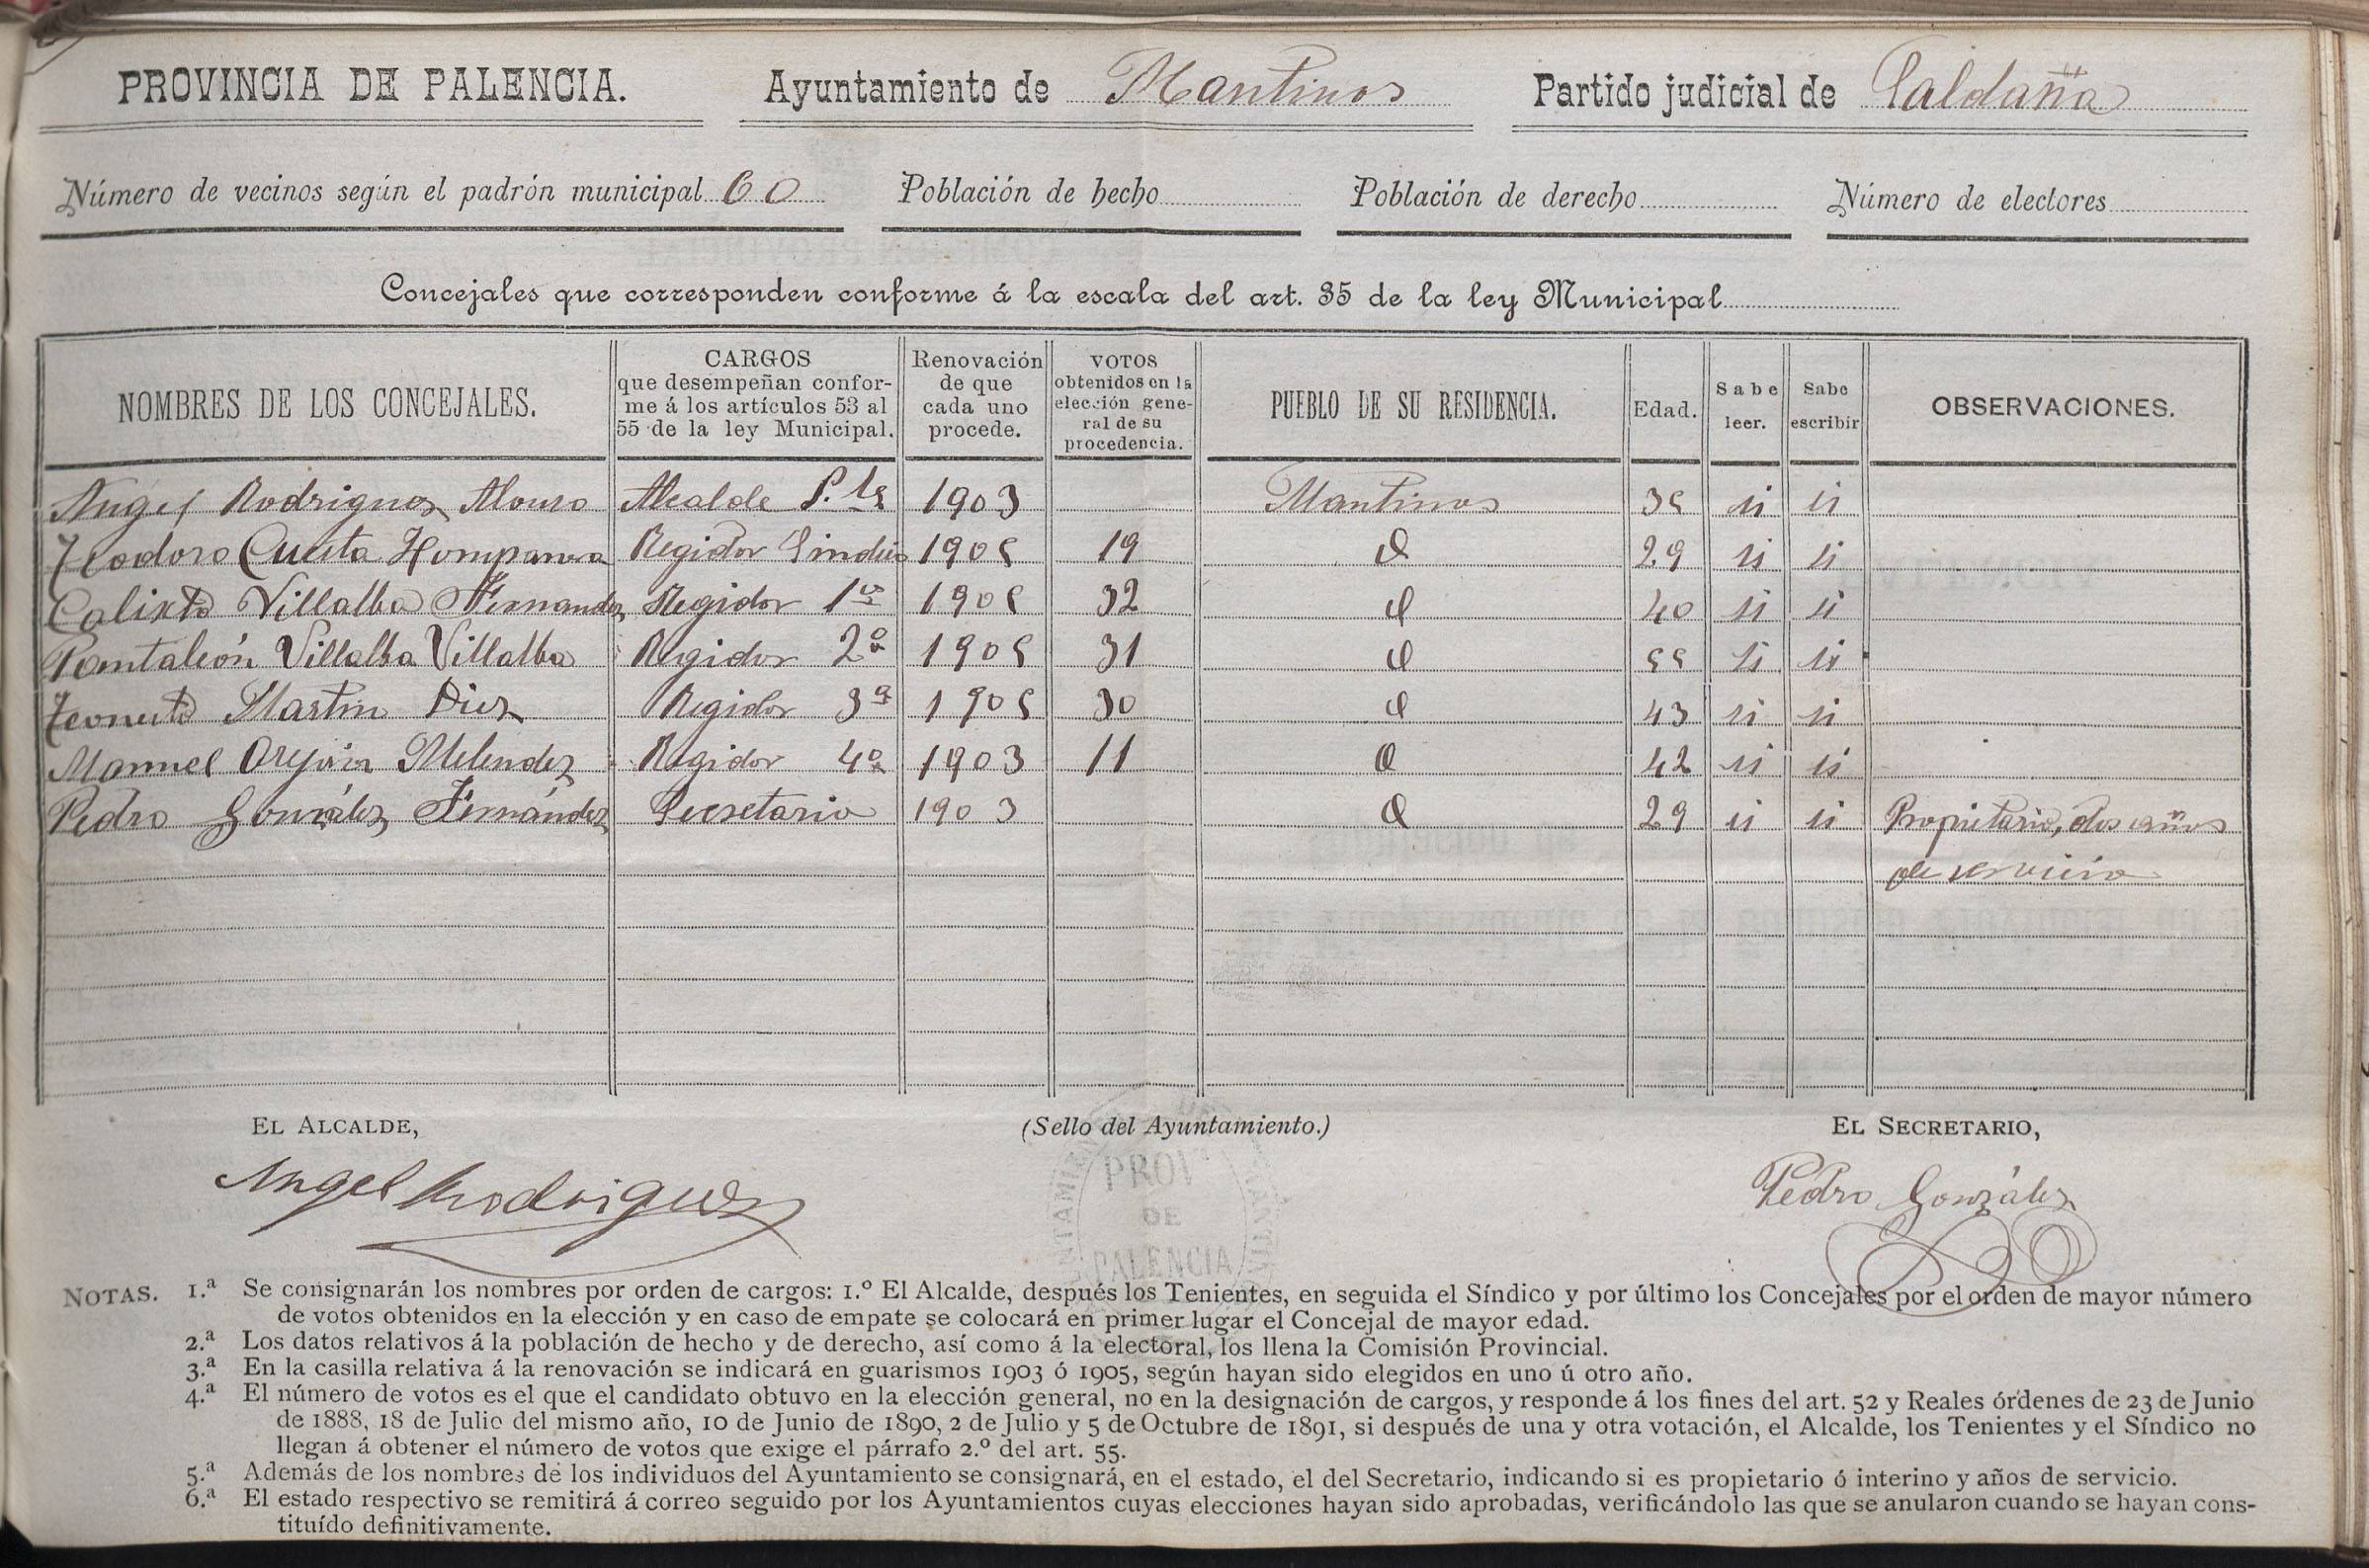 PROVINCIA DE PALENCIA. Ayuntamiento de Mantinos Partido judicial de Saldaña
Número de vecinos según el padrón municipal 60 Población de hecho Población de derecho Número de electores
Concejales que corresponden conforme á la escala del art. 35 de la ley Municipal
NOMBRES DE LOS CONCEJALES.
CARGOS
que desempeñan confor-
me á los artículos 53 al
55 de la ley Municipal.
Renovación
de que
cada uno
procede.
VOTOS
obtenidos en la
elección gene-
ral de su
procedencia.
PUEBLO DE SU RESIDENCIA.
Edad.
Sabe
leer.
Sabe
escribir
OBSERVACIONES.
Angel Rodriguez Alonso Alcalde P.te 1903 Mantinos 35 si si
Teodoro Cuesta Hompanera Regidor Sindico 1905 19 29 si si
Calixto Villalba Fernandez Regidor 1º 1905 32 40 si si
Pantaleón Villalba Villalba Regidor 2º 1905 31 55 si si
Martin Diez Regidor 3º 1905 30 43 si si
Manuel Melendez Regidor 4º 1903 11 42 si si
Pedro González Fernández Secretario 1903 29 si si Propietario, dos años
de servicio
EL ALCALDE, (Sello del Ayuntamiento.) EL SECRETARIO,
Angel Rodriguez Pedro González
PROV.
DE
PALENCIA
NOTAS. 1.ª Se consignarán los nombres por orden de cargos: 1.º El Alcalde, después los Tenientes, en seguida el Síndico y por último los Concejales por el orden de mayor número
de votos obtenidos en la elección y en caso de empate se colocará en primer lugar el Concejal de mayor edad.
2.ª Los datos relativos á la población de hecho y de derecho, así como á la electoral, los llena la Comisión Provincial.
3.ª En la casilla relativa á la renovación se indicará en guarismos 1903 ó 1905, según hayan sido elegidos en uno ú otro año.
4.ª El número de votos es el que el candidato obtuvo en la elección general, no en la designación de cargos, y responde á los fines del art. 52 y Reales órdenes de 23 de Junio
de 1888, 18 de Julio del mismo año, 10 de Junio de 1890, 2 de Julio y 5 de Octubre de 1891, si después de una y otra votación, el Alcalde, los Tenientes y el Síndico no
llegan á obtener el número de votos que exige el párrafo 2.º del art. 55.
5.ª Además de los nombres de los individuos del Ayuntamiento se consignará, en el estado, el del Secretario, indicando si es propietario ó interino y años de servicio.
6.ª El estado respectivo se remitirá á correo seguido por los Ayuntamientos cuyas elecciones hayan sido aprobadas, verificándolo las que se anularon cuando se hayan cons-
tituído definitivamente.